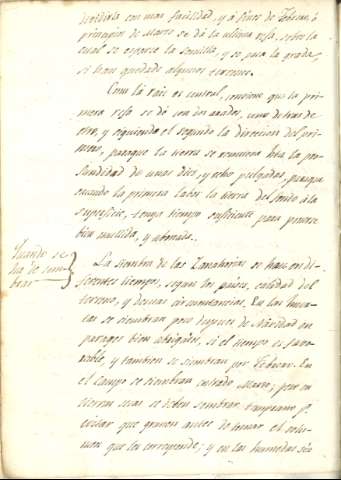 dividirla con mas facilidad, y á fines de Febrer. ó
principios de Marzo se dá la ultima reja, sobre la
cual se esparce la semilla, y se pasa la grada,
si han quedado algunos terrones.
Como la raiz es central, conviene que la pri-
mera reja se dé con dos arados, uno detras de
otro, y siguiendo el segundo la direccion del pri-
mero, paraque la tierra se remueva hta la pro-
fundidad de unas diez, y ocho pulgadas, paraque
sacando la primera labor la tierra del fondo á la
superficie, tenga tiempo suficiente para ponerse
bien mullida, y abonada.
Quando se
ha de sem-
brar
La siembra de las Zanahorias se hace en di-
ferentes tiempos, segun los paises, calidad del
terreno, y demas circunstancias. En las huer-
tas se siembran poco despues de Navidad en
parages bien abrigados, si el tiempo es favo-
rable, y tambien se siembran por Febrer. En
el Campo se siembran entrado Marzo; pero en
tierras secas se deben sembrar temprano p.
evitar que granen antes de tomar el volu-
men que les corresponde; y en las humedas